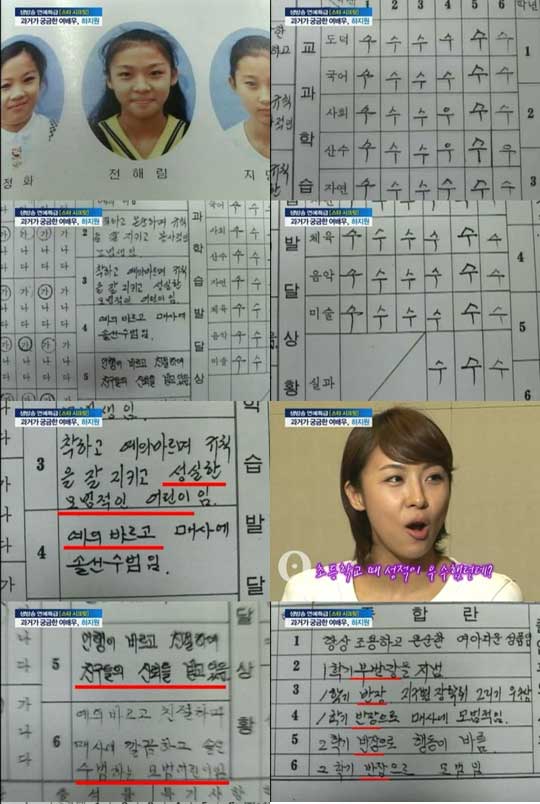 생방송 연예특급 [스타 시크릿]
과거가 궁금한 여배우, 하지원
정화
전해림
지
1 2 3 4 5 6
학년
교과학습
도덕 수 수 수 수 수 수
국어 수 수 수 수 수 수
사회 수 수 수 우 수 수
산수 수 수 수 우 수 우
자연 수 수 수 수 수 수
1
2
3
생방송 연예특급 [스타 시크릿]
과거가 궁금한 여배우, 하지원
2
3
착하고 예의바르며 규칙
을 잘 지키고 성실한
모범적인 어린이임.
4
예의 바르고 매사에
솔선수범임.
5
언행이 바르고 친절하여
친구들의 신뢰를 받고 있음
과학습발달상
국어 수 수
사회 수
자연 수 수
체육 수 수
음악 수 수
미술 수 수
생방송 연예특급 [스타 시크릿]
과거가 궁금한 여배우, 하지원
발달상황
체육 수 수 수 수 수 수
음악 수 수 수 수 수 수
미술 수 수 수 수 수 수
실과 수 수 수
4
5
6
생방송 연예특급 [스타 시크릿]
과거가 궁금한 여배우, 하지원
3
착하고 예의바르며 규칙
을 잘 지키고 성실한
모범적인 어린이임.
4
예의 바르고 매사에
솔선수범임.
학습발달
생방송 연예특급 [스타 시크릿]
과거가 궁금한 여배우, 하지원
초등학교 때 성적이 우수했던데?
생방송 연예특급 [스타 시크릿]
과거가 궁금한 여배우, 하지원
5
언행이 바르고 친절하여
친구들의 신뢰를 받고 있음
6
예의 바르고 친절하며
매사에 깔끔하고 솔선
수범하는 모범어린이임
달상황
생방송 연예특급 [스타 시크릿]
과거가 궁금한 여배우, 하지원
종합란
1 항상 조용하고 온순한 여자다운 성품임
2 1학기 부반장을 지냄
3 1학기 반장
4 1학기 반장으로 매사에 모범적임.
5 2학기 반장으로 행동이 바름.
6 2학기 반장으로 모범임